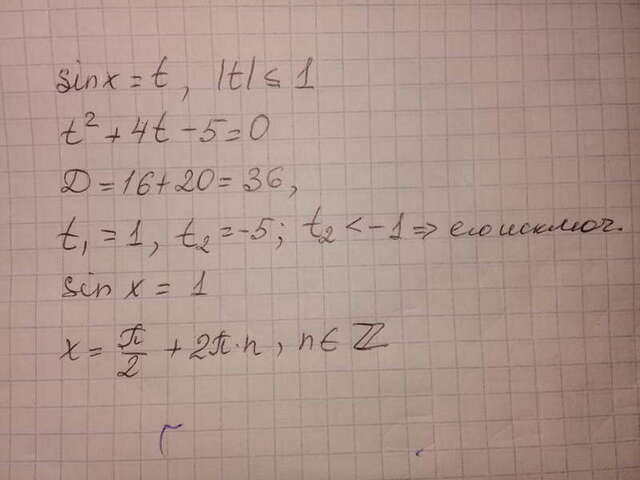 sin x = t, |t| ≤ 1
t² + 4t - 5 = 0
D = 16 + 20 = 36,
t₁ = 1, t₂ = -5; t₂ < -1 ⇒ его исключ.
sin x = 1
x = π/2 + 2π·n, n ∈ ℤ